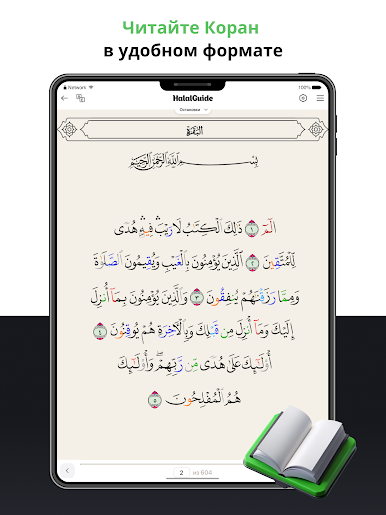 Читайте Коран
в удобном формате
Network 100%
HalalGuide
Остановки
البقرة
بِسْمِ ٱللَّهِ ٱلرَّحْمَٰنِ ٱلرَّحِيمِ
الٓمٓ ١ ذَٰلِكَ ٱلْكِتَٰبُ لَا رَيْبَ ۛ فِيهِ ۛ هُدًى
لِّلْمُتَّقِينَ ٢ ٱلَّذِينَ يُؤْمِنُونَ بِٱلْغَيْبِ وَيُقِيمُونَ ٱلصَّلَوٰةَ
وَمِمَّا رَزَقْنَٰهُمْ يُنفِقُونَ ٣ وَٱلَّذِينَ يُؤْمِنُونَ بِمَآ أُنزِلَ
إِلَيْكَ وَمَآ أُنزِلَ مِن قَبْلِكَ وَبِٱلْءَاخِرَةِ هُمْ يُوقِنُونَ ٤
أُو۟لَٰٓئِكَ عَلَىٰ هُدًى مِّن رَّبِّهِمْ ۖ وَأُو۟لَٰٓئِكَ
هُمُ ٱلْمُفْلِحُونَ ٥
2 из 604